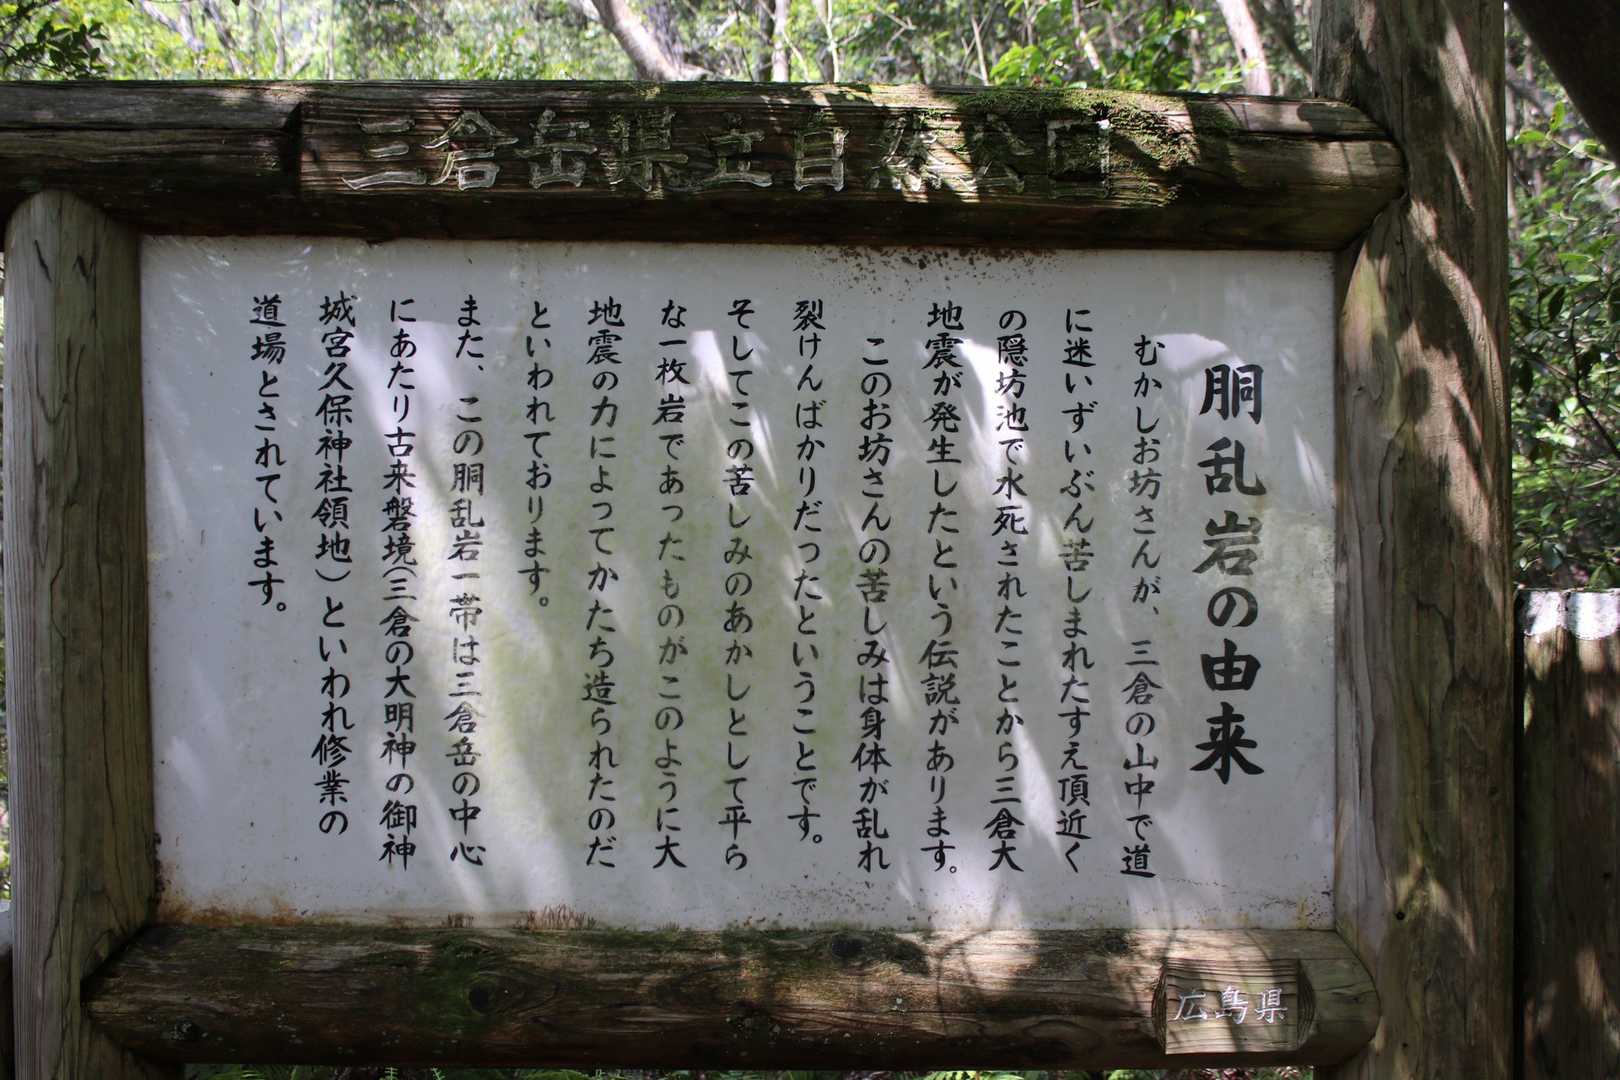 三倉岳県立自然公園
胴乱岩の由来
むかしお坊さんが、三倉の山中で道
に迷いずいぶん苦しまれたすえ頂近く
の隠坊池で水死されたことから三倉大
地震が発生したという伝説があります。
このお坊さんの苦しみは身体が乱れ
裂けんばかりだったということです。
そしてこの苦しみのあかしとして平ら
な一枚岩であったものがこのように大
地震の力によってかたち造られたのだ
といわれております。
また、この胴乱岩一帯は三倉岳の中心
にあたり古来磐境(三倉の大明神の御神
城宮久保神社領地)といわれ修業の
道場とされています。
広島県